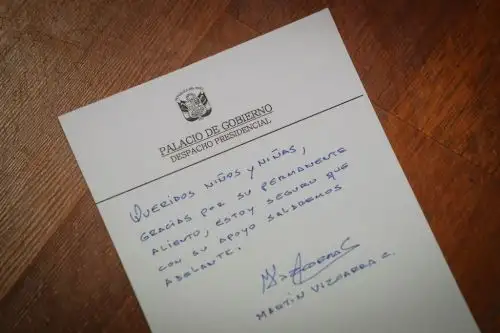 PALACIO DE GOBIERNO
DESPACHO PRESIDENCIAL
QUERIDOS NIÑOS Y NIÑAS,
GRACIAS POR SU PERMANENTE
ALIENTO, ESTOY SEGURO QUE
CON SU APOYO SALDREMOS
ADELANTE.
MARTÍN VIZCARRA C.